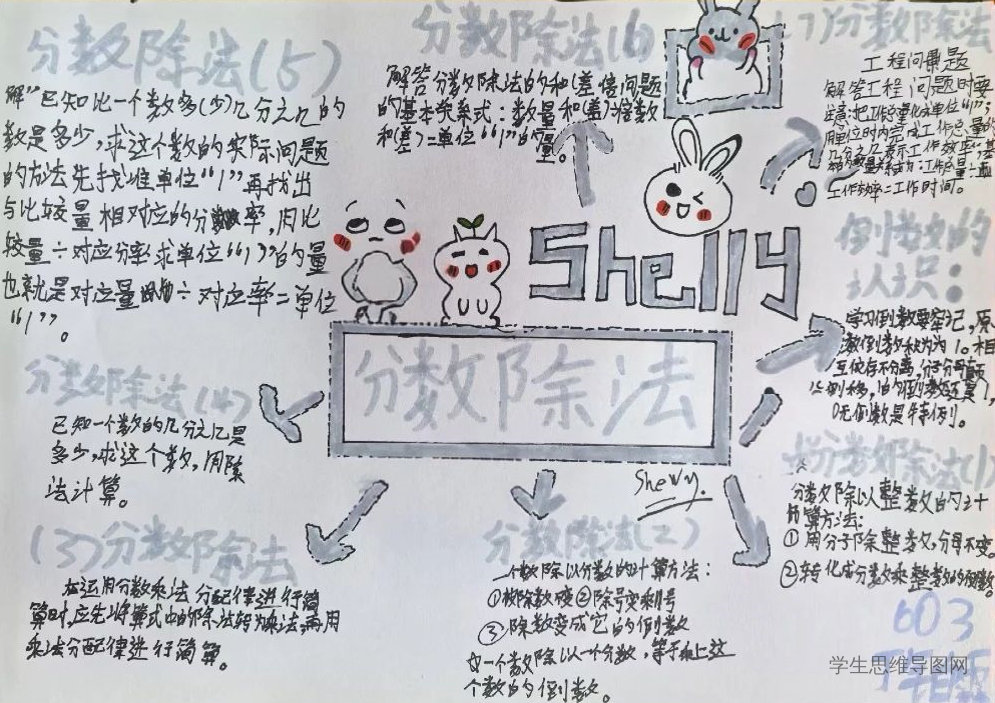 分数除法(5)
解"已知比一个数多(少)几分之几的
数是多少,求这个数的实际问题
的方法先找准单位"1"再找出
与比较量相对应的分数率,用比
较量÷对应分率求单位"1"的量
也就是对应量÷对应率=单位
"1"。
分数除法(6)
解答分数除法的和(差)倍问题
的基本关系式:数量和(差)÷倍数
和(差)=单位"1"的量。
(7)分数除法
工程问题
解答工程问题时要
注意:把工作总量化成单位"1";
用单位时间完成工作总量的
几分之几表示工作效率;基
工作效率=工作时间。
Shelly
分数除法
Shelly.
倒数的
认识:
学习倒数要牢记,原
数倒数积为1。相
互依存不分离,分子分母颠
倒移,1的倒数还是1,
0无倒数是特例。
分数除法(4)
已知一个数的几分之几是
多少,求这个数,用除
法计算。
分数除法(1)
分数除以整数的计
算方法:
①用分子除整数,分母不变。
②转化成分数乘整数的倒数
(3)分数除法
在运用分数乘法分配律进行简
算时,应先将算式中的除法转为乘法,再用
乘法分配律进行简算。
分数除法(2)
一个数除以分数的计算方法:
①被除数不变②除号变乘号
③除数变成它的倒数
一个数除以一个分数,等于乘上这
个数的倒数。
603
学生思维导图网